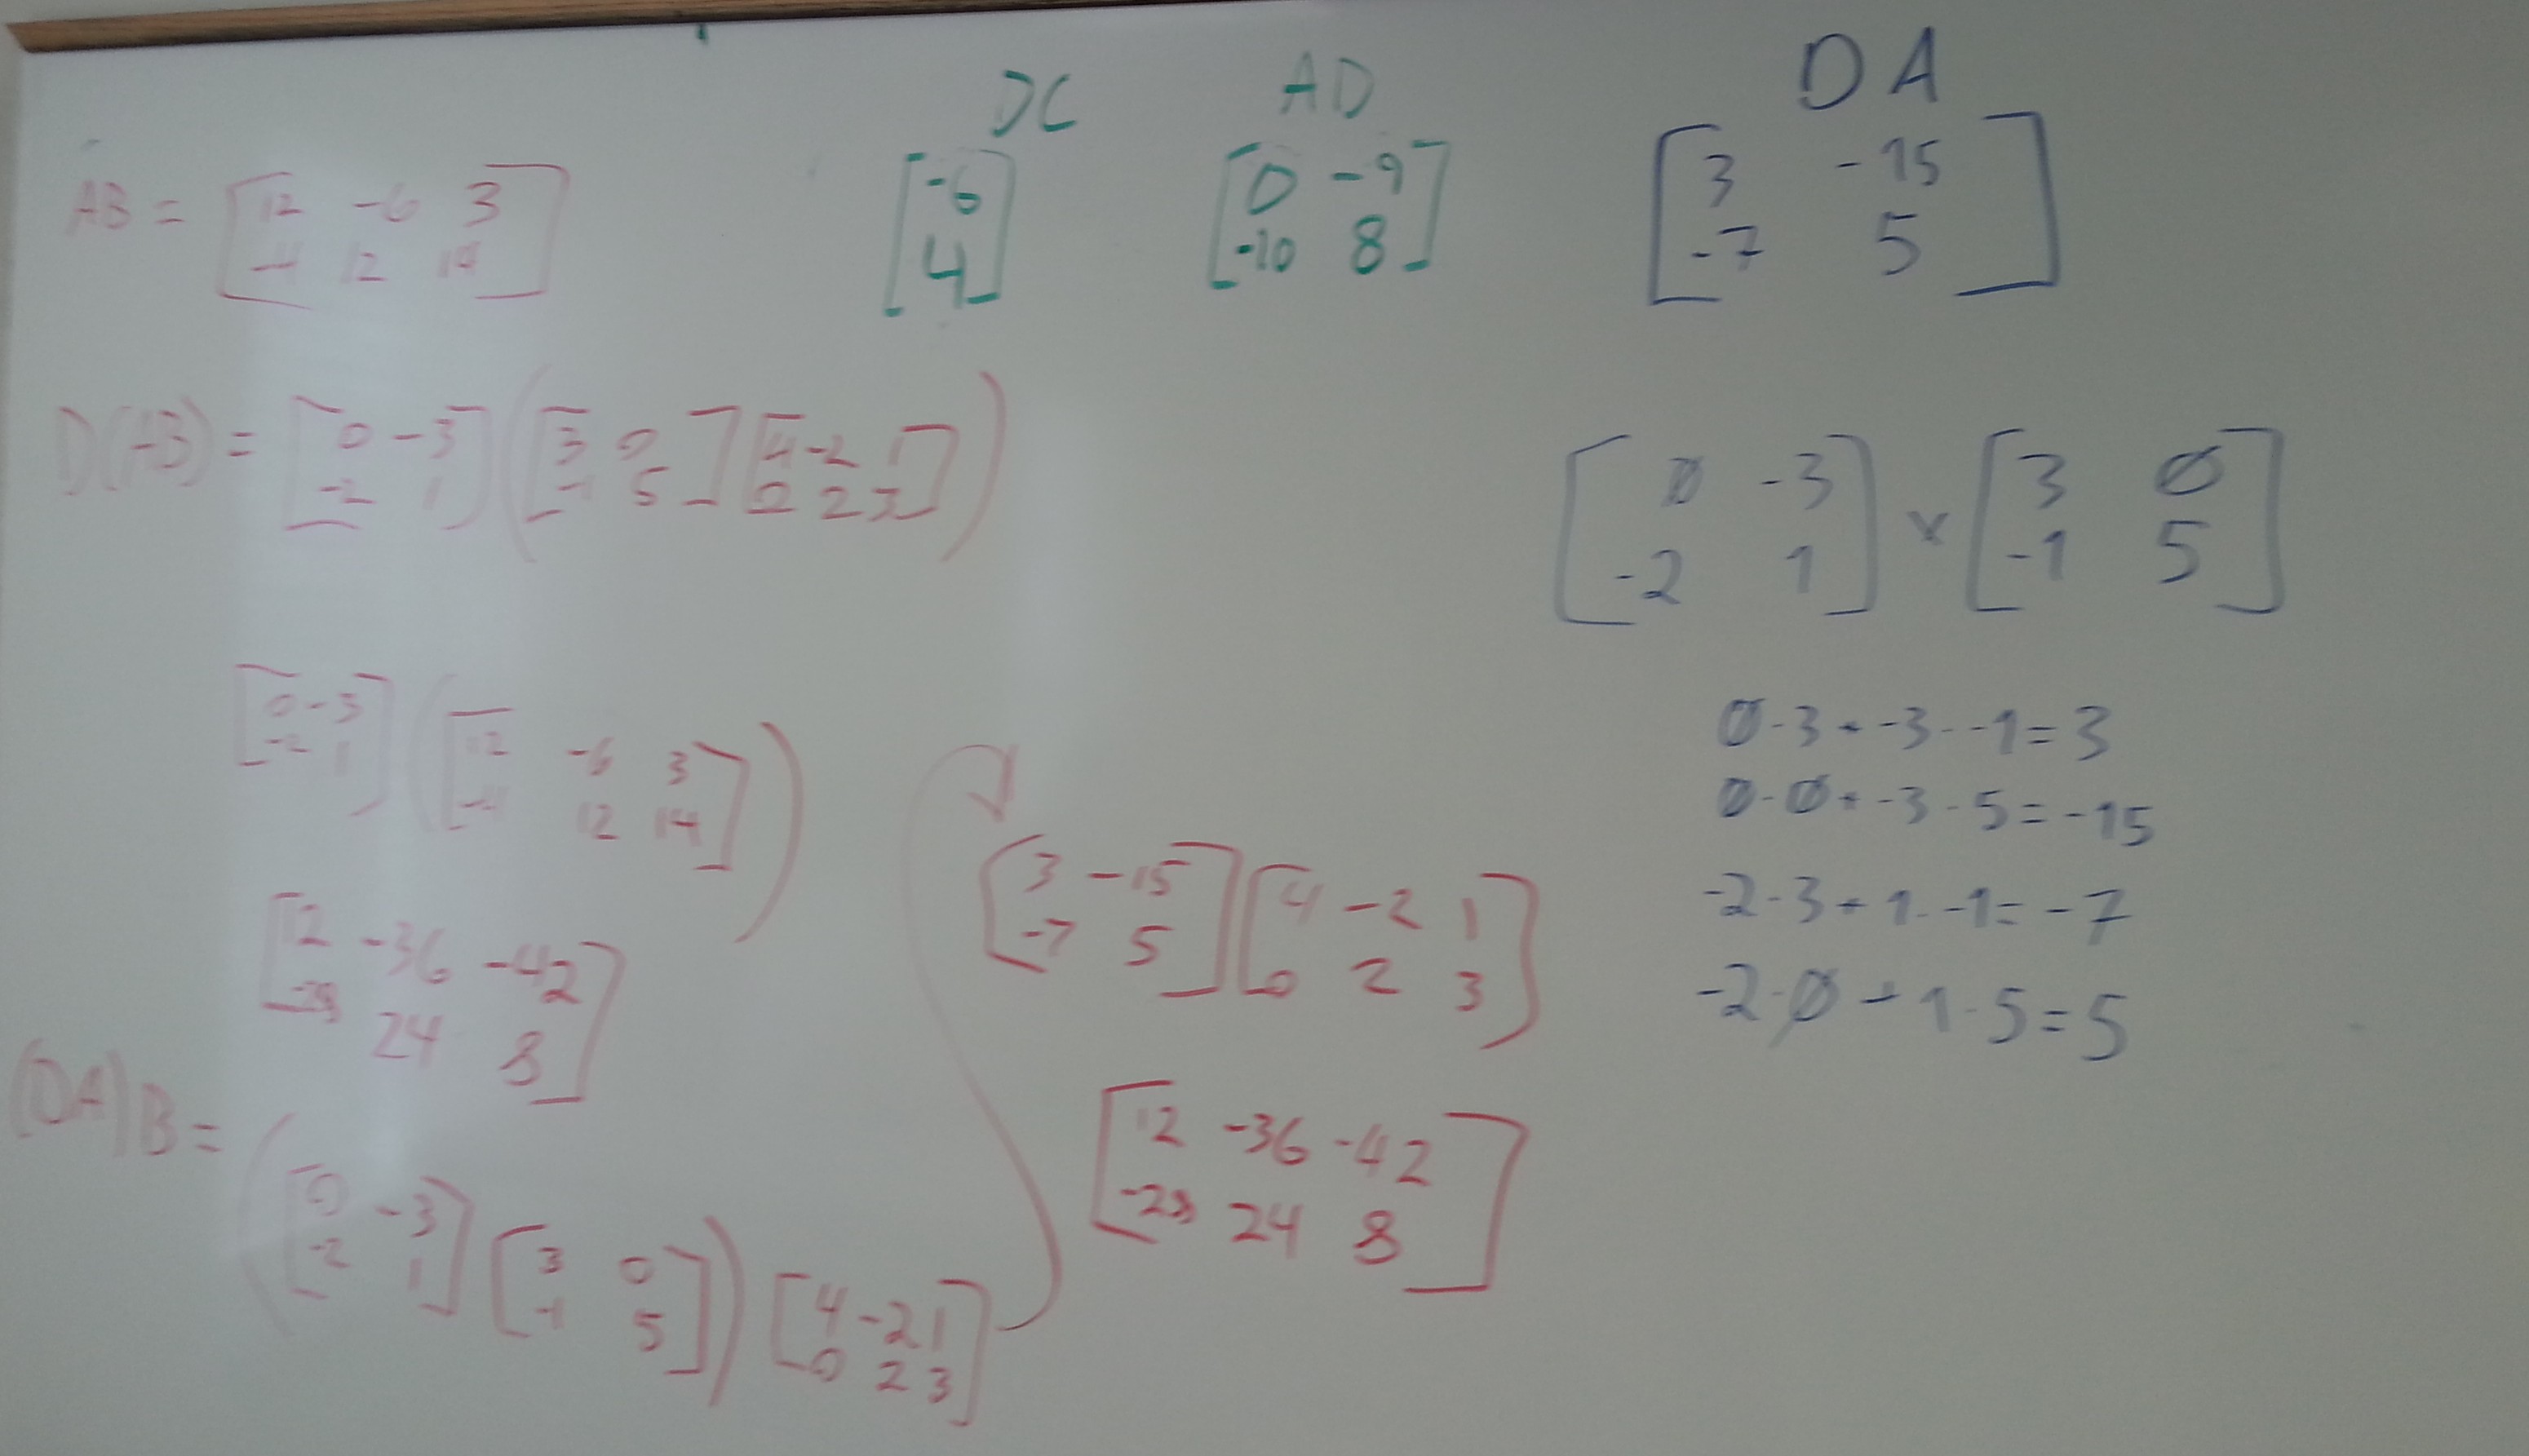 DC AD DA
AB = [12 -6 3
-4 12 14]
[-6
4]
[0 -9
-10 8]
[3 -15
-7 5]
D(AB) = [0 -3
-2 1] ([3 0
-1 5] [4 -2 1
0 2 3])
[0 -3
-2 1] ([12 -6 3
-4 12 14])
[12 -36 -42
-28 24 8]
(DA)B =
([0 -3
-2 1] [3 0
-1 5]) [4 -2 1
0 2 3]
[3 -15
-7 5] [4 -2 1
0 2 3]
[12 -36 -42
-28 24 8]
[0 -3
-2 1] x [3 0
-1 5]
0·3+-3·-1=3
0·0+-3·5=-15
-2·3+1·-1=-7
-2·0+1·5=5